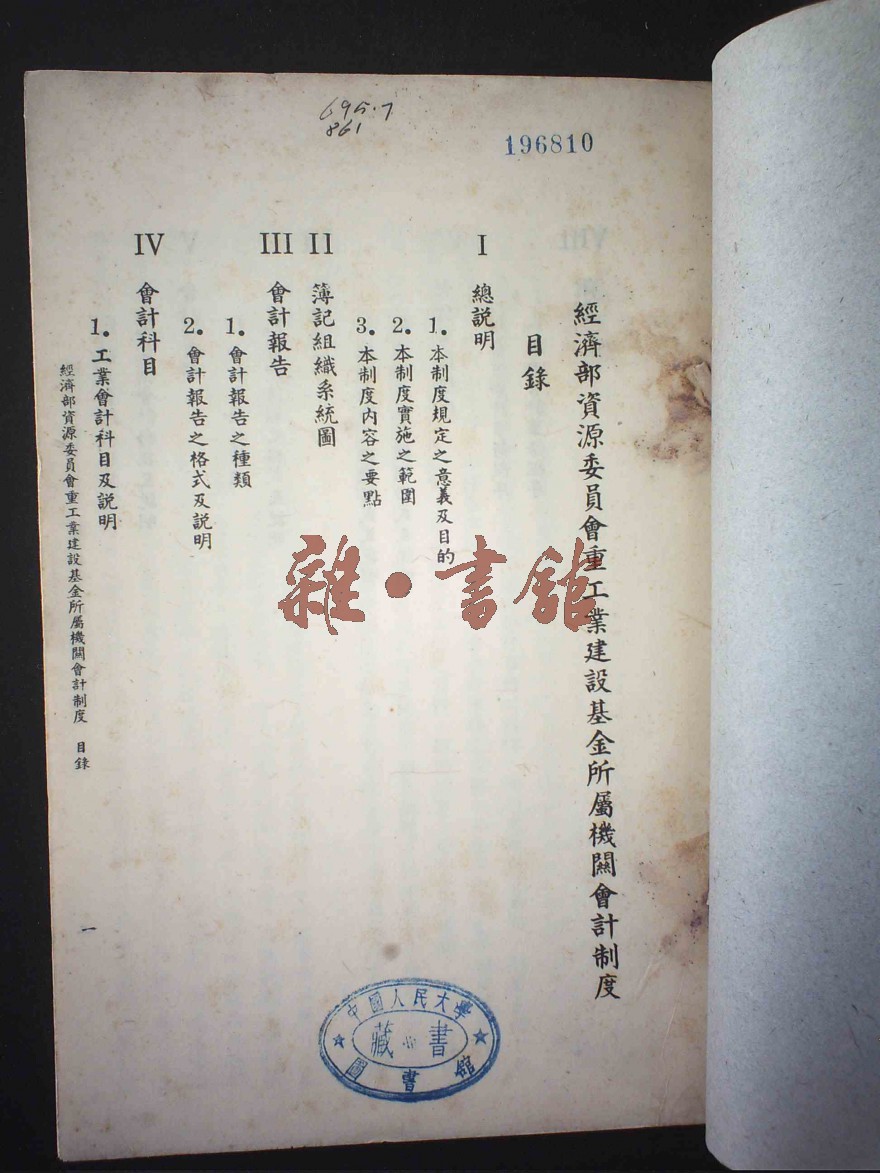 695.7
861
196810
經濟部資源委員會重工業建設基金所屬機關會計制度
目錄
I 總說明
1. 本制度規定之意義及目的
2. 本制度實施之範圍
3. 本制度內容之要點
II 簿記組織系統圖
III 會計報告
1. 會計報告之種類
2. 會計報告之格式及說明
IV 會計科目
1. 工業會計科目及説明
經濟部資源委員會重工業建設基金所屬機關會計制度 目錄
一
雜·書館
中國人民大學
藏書
圖書館